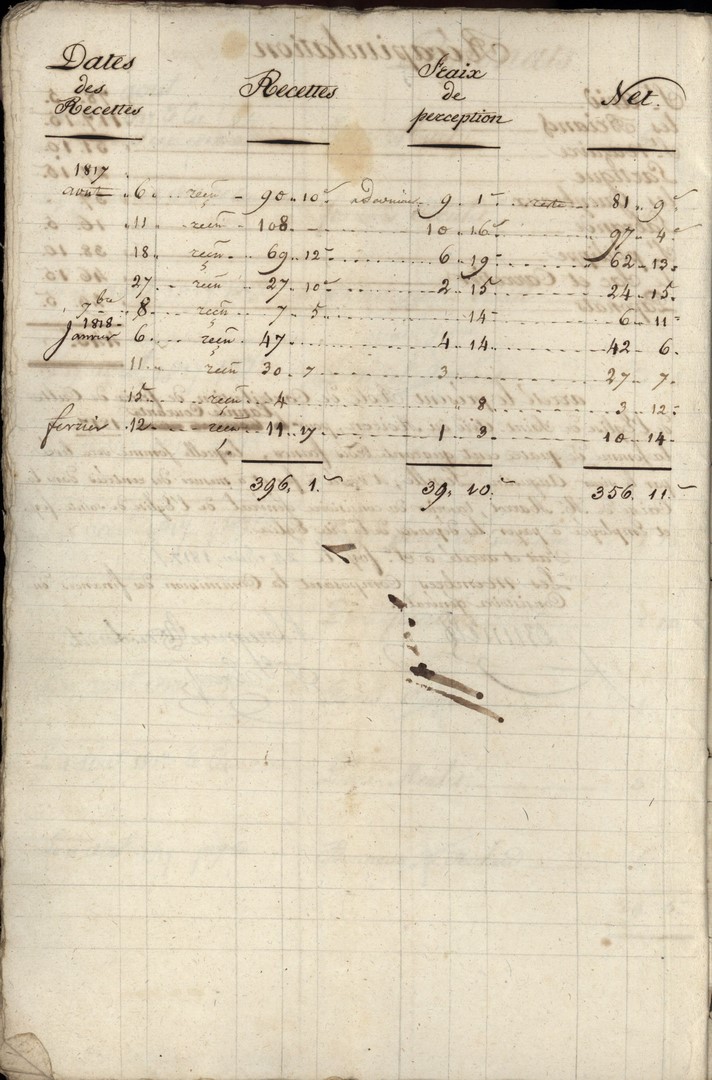 Dates des Recettes
Recettes
Fraix de perception
Net.
1817
aout 6 reçu 90 10 9 1 reste 81 9
11 reçu 108 10 16 97 4
18 reçu 69 12 6 19 62 13
27 reçu 27 10 2 15 24 15
7bre 8 reçu 7 5 14 6 11
1818
Janvier 6 reçu 47 4 14 42 6
11 reçu 30 7 3 27 7
15 reçu 4 8 3 12
fevrier 12 reçu 11 17 1 3 10 14
396. 1 39. 10 356. 11